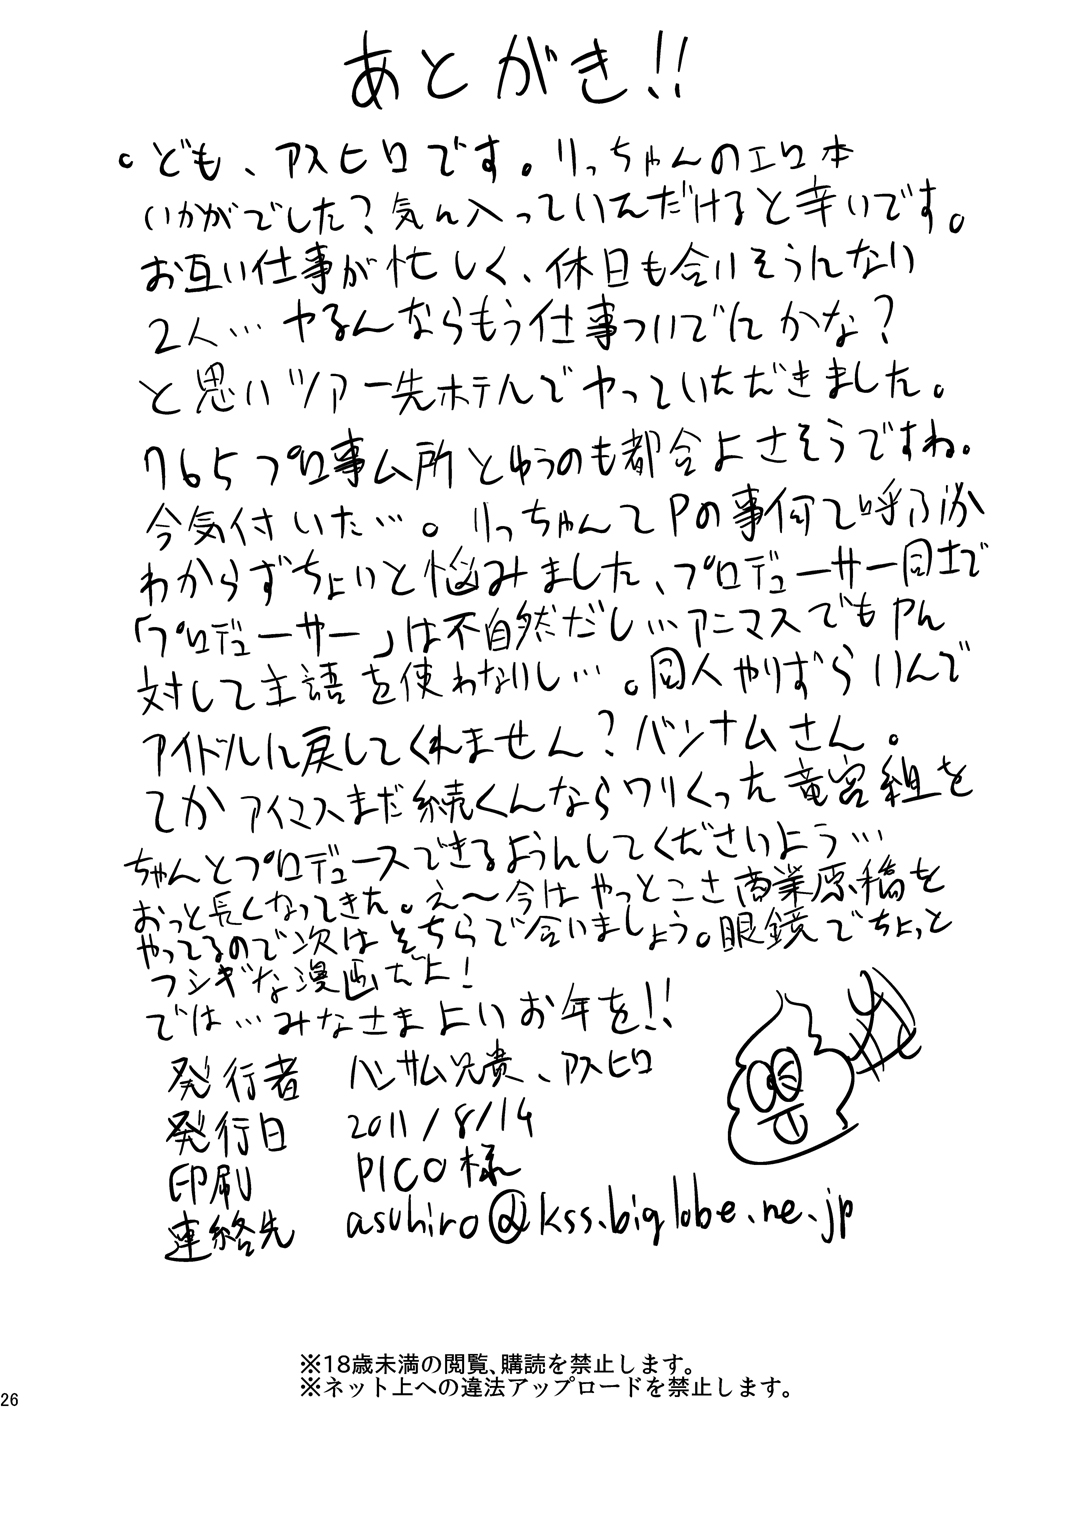 あとがき!!
。ども、アスヒロです。りっちゃんのエロ本
いかがでした?気に入っていただけると幸いです。
お互い仕事が忙しく、休日も合いそうにない
2人…ヤるんならもう仕事ついでにかな?
と思いツアー先ホテルでヤっていただきました。
765プロ事ム所とゆうのも都合よさそうですね。
今気付いた…。りっちゃんてPの事何て呼ぶか
わからずちょいと悩みました、プロデューサー同士で
「プロデューサー」は不自然だし…アニマスでもPに
対して主語を使わないし…。同人やりずらいんで
アイドルに戻してくれません?バンナムさん。
てかアイマスまだ続くんならワリくった竜宮組を
ちゃんとプロデュースできるようにしてくださいよう…
おっと長くなってきた。え〜今はやっとこさ商業原稿を
やってるので次はそちらで合いましょう。眼鏡でちょっと
フシギな漫画だよ!
では…みなさまよいお年を!!
発行者 ハンサム兄貴、アスヒロ
発行日 2011/8/14
印刷 PICO様
連絡先 asuhiro@kss.biglobe.ne.jp
※18歳未満の閲覧、購読を禁止します。
※ネット上への違法アップロードを禁止します。
26